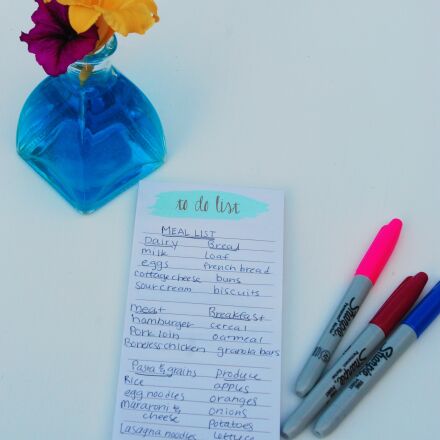 to do list
MEAL LIST
Dairy Bread
milk loaf
eggs french bread
cottage cheese buns
sour cream biscuits
meat Breakfast
hamburger cereal
Pork loin oatmeal
Boneless chicken granola bars
Pasta & grains produce
Rice apples
egg noodles oranges
Mararoni & onions
cheese Potatoes
Lasagna noodles lettuce
Sharpie
Sharpie
Sharpie